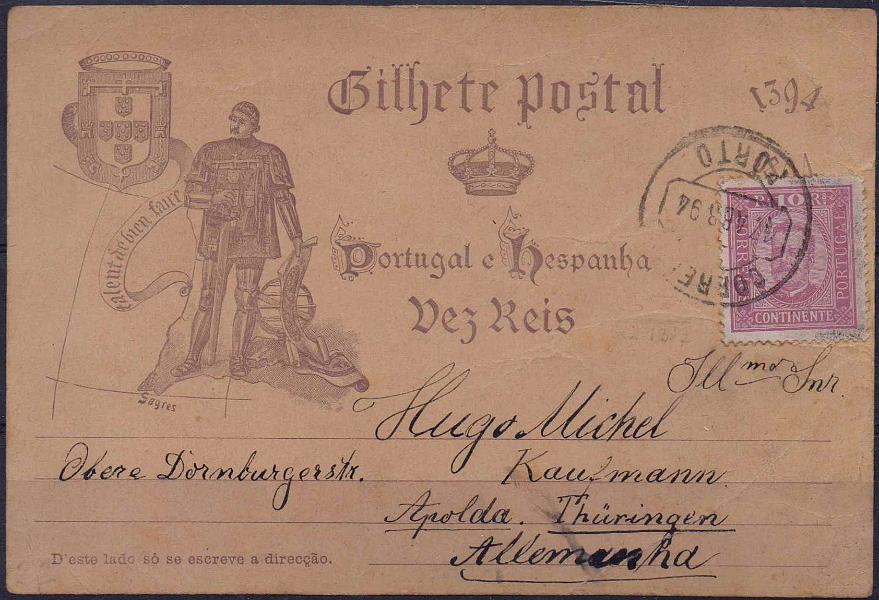 Bilhete Postal
1394
talent de bien faire
PORTO
ABR 94
CORRE
10 R
CORRE
PORTUGAL
CONTINENTE
Portugal e Hespanha
Dez Reis
Sagres
Illmo Snr.
Hugo Michel
Obere Dornburgerstr.
Kaufmann
Apolda. Thüringen
Allemanha
D'este lado só se escreve a direcção.